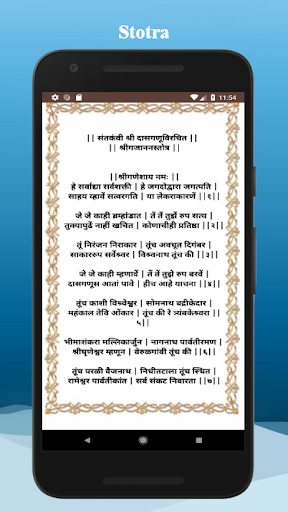 Stotra
11:54
|| संतकवी श्री दासगणूविरचित ||
|| श्रीगजाननस्तोत्र ||
||श्रीगणेशाय नमः ||
हे सर्वाद्या सर्वशक्ती | हे जगदोद्धारा जगत्पति |
साहय व्हावें सत्वरगति | या लेकराकारणें ||१||
जे जे काही ब्रम्हांडात | तें तें तुझें रुप सत्य |
तुजपुढें नाहीं खचित | कोणाचीही प्रतिष्ठा ||२||
तूं निरंजन निराकार | तूंच अवधूत दिगंबर |
साकाररुप सर्वेश्वर | विश्वनाथ तूंच की ||३||
जे जे काही म्हणावें | तें तें तुझेंच रुप बरवें |
दासगणूस आतां पावे | हीच आहे याचना ||४||
तूंच काशी विश्वेश्वर | सोमनाथ बद्रीकेदार |
महंकाल तेवि ओंकार | तूंच की रे त्र्यंबकेश्वरा ||
५||
भीमाशंकरा मल्लिकार्जुन | नागनाथ पार्वतीरमण |
श्रीघृणेश्वर म्हणून | वेरुळगांवीं तूंच की ||६||
तूंच परळी वैजनाथ | निधीतटाला तूंच स्थित |
रामेश्वर पार्वतीकांत | सर्व संकट निवारता ||७||